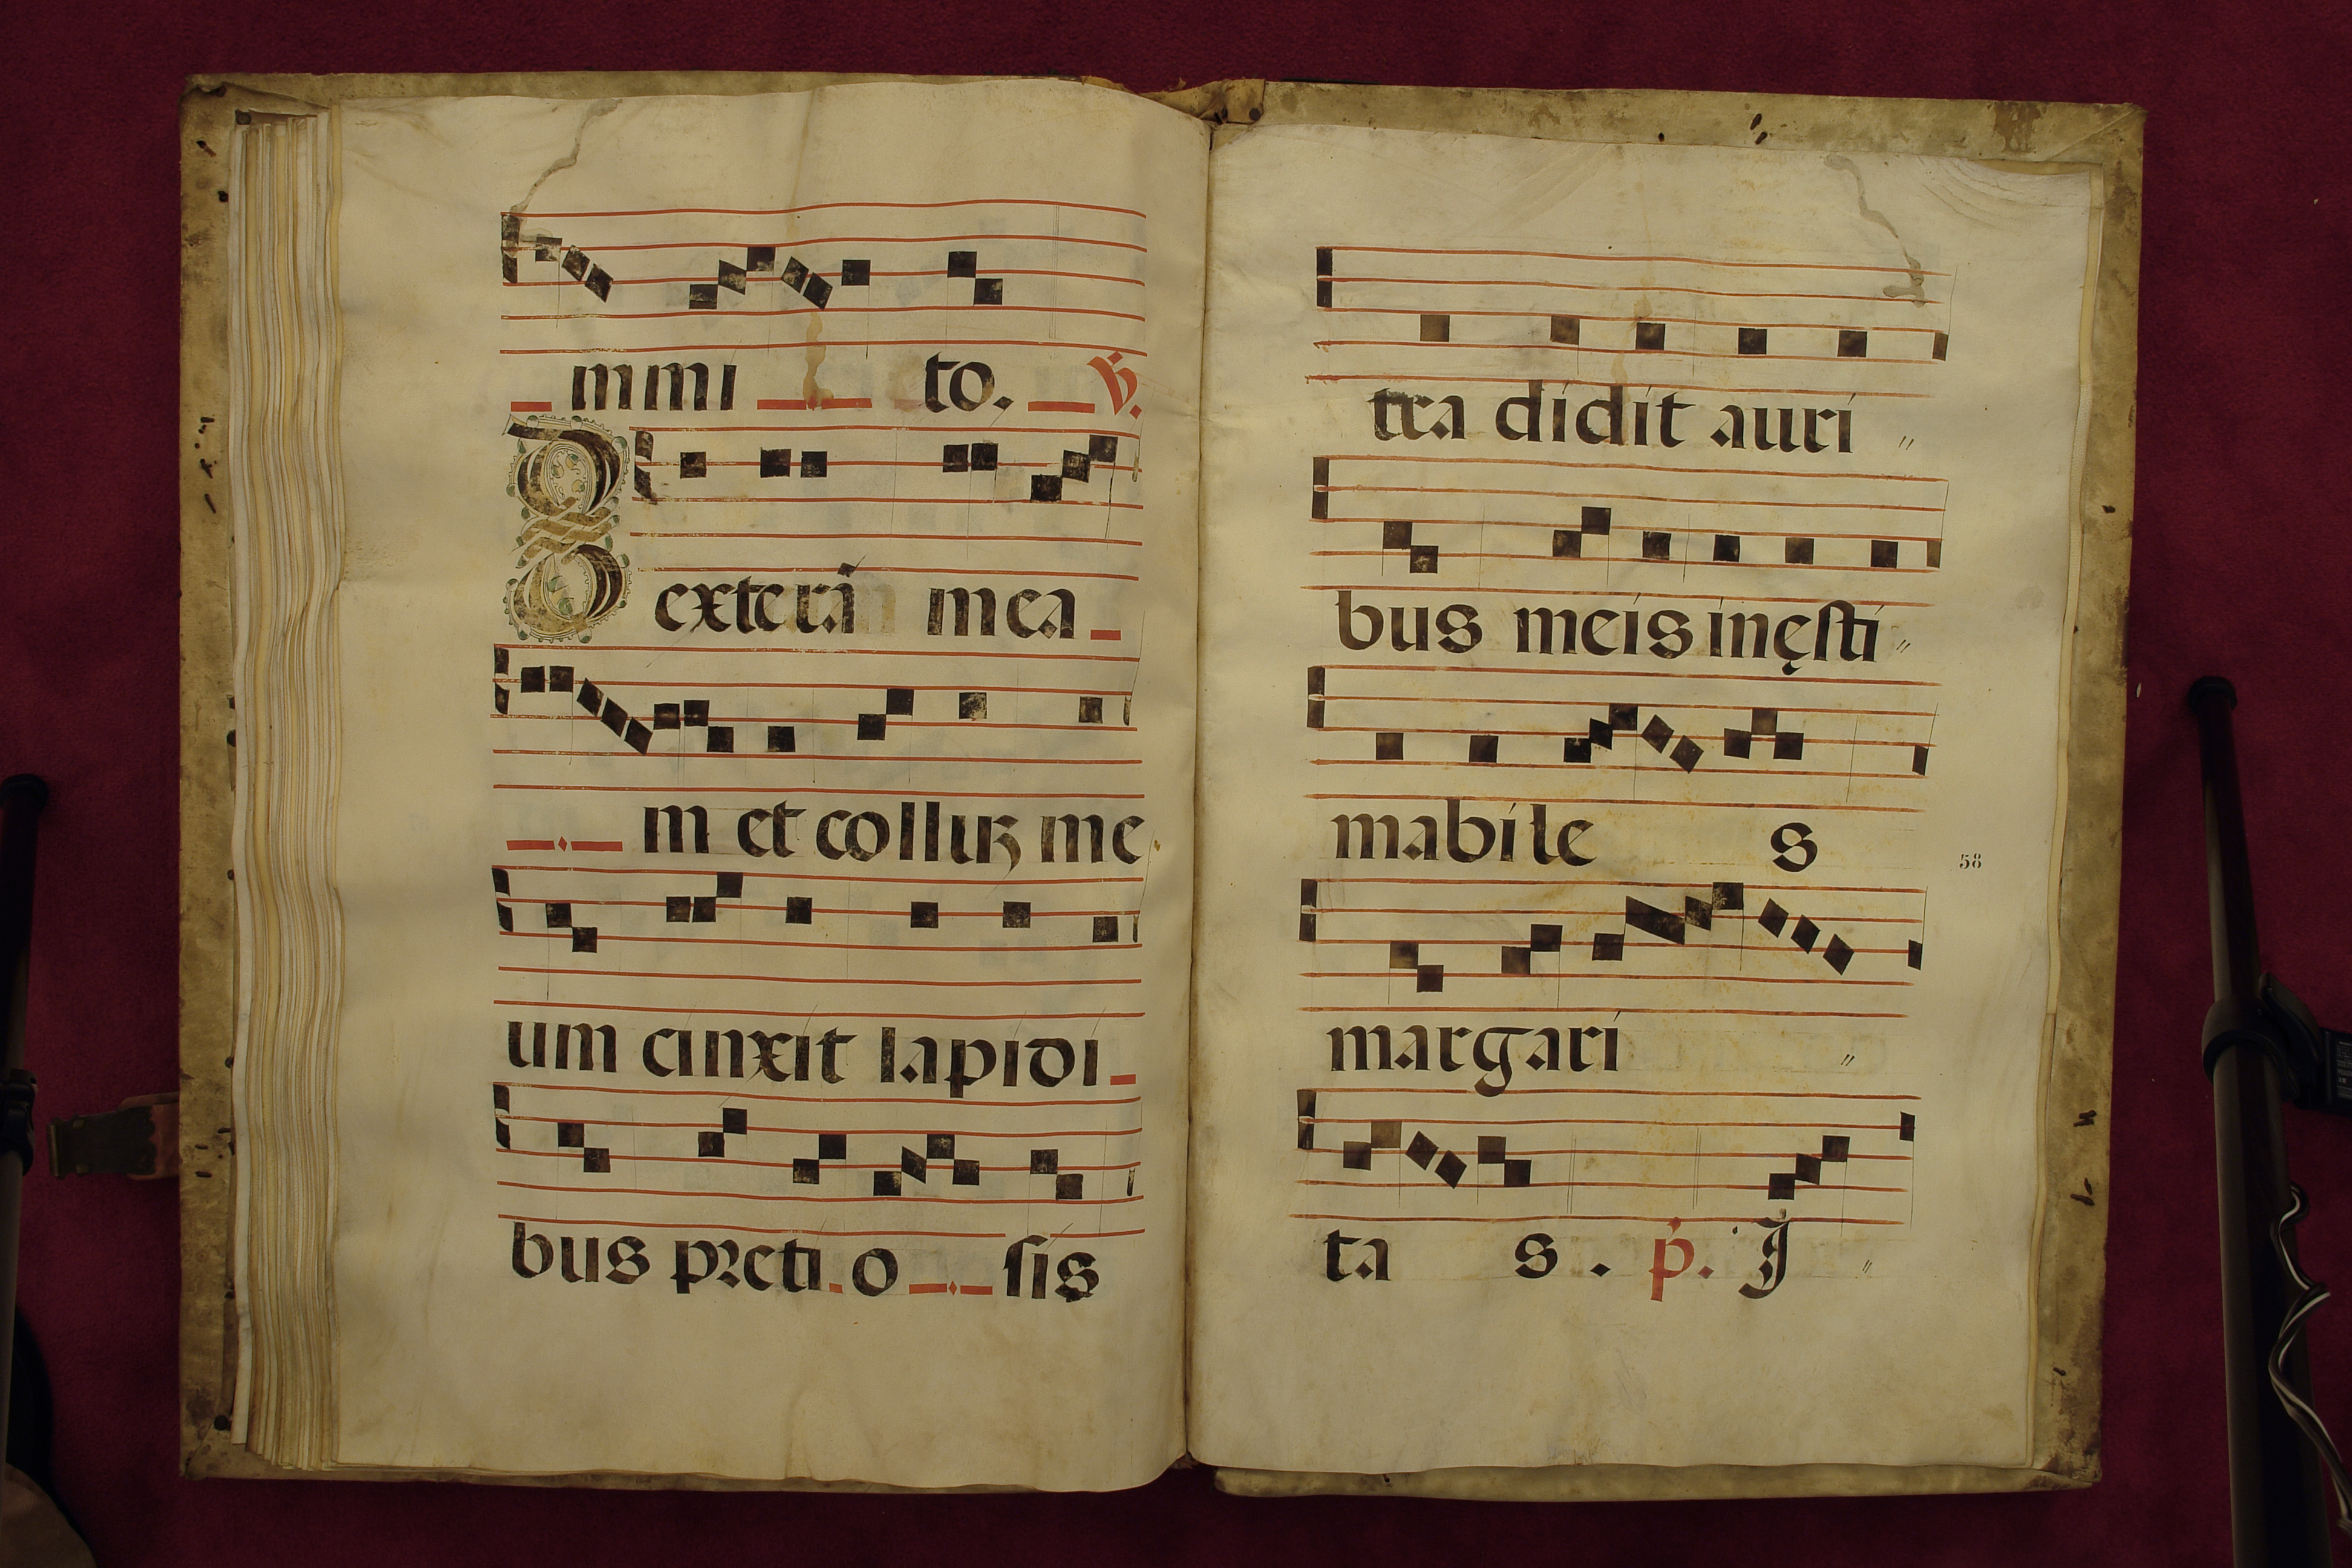 mmi to. ℣.
Dexterã mea
m et colluꝫ me
um cinxit lapidi
bus preti o sis
tra didit auri
bus meis inęsti
mabile s
58
margari
ta s . p. I